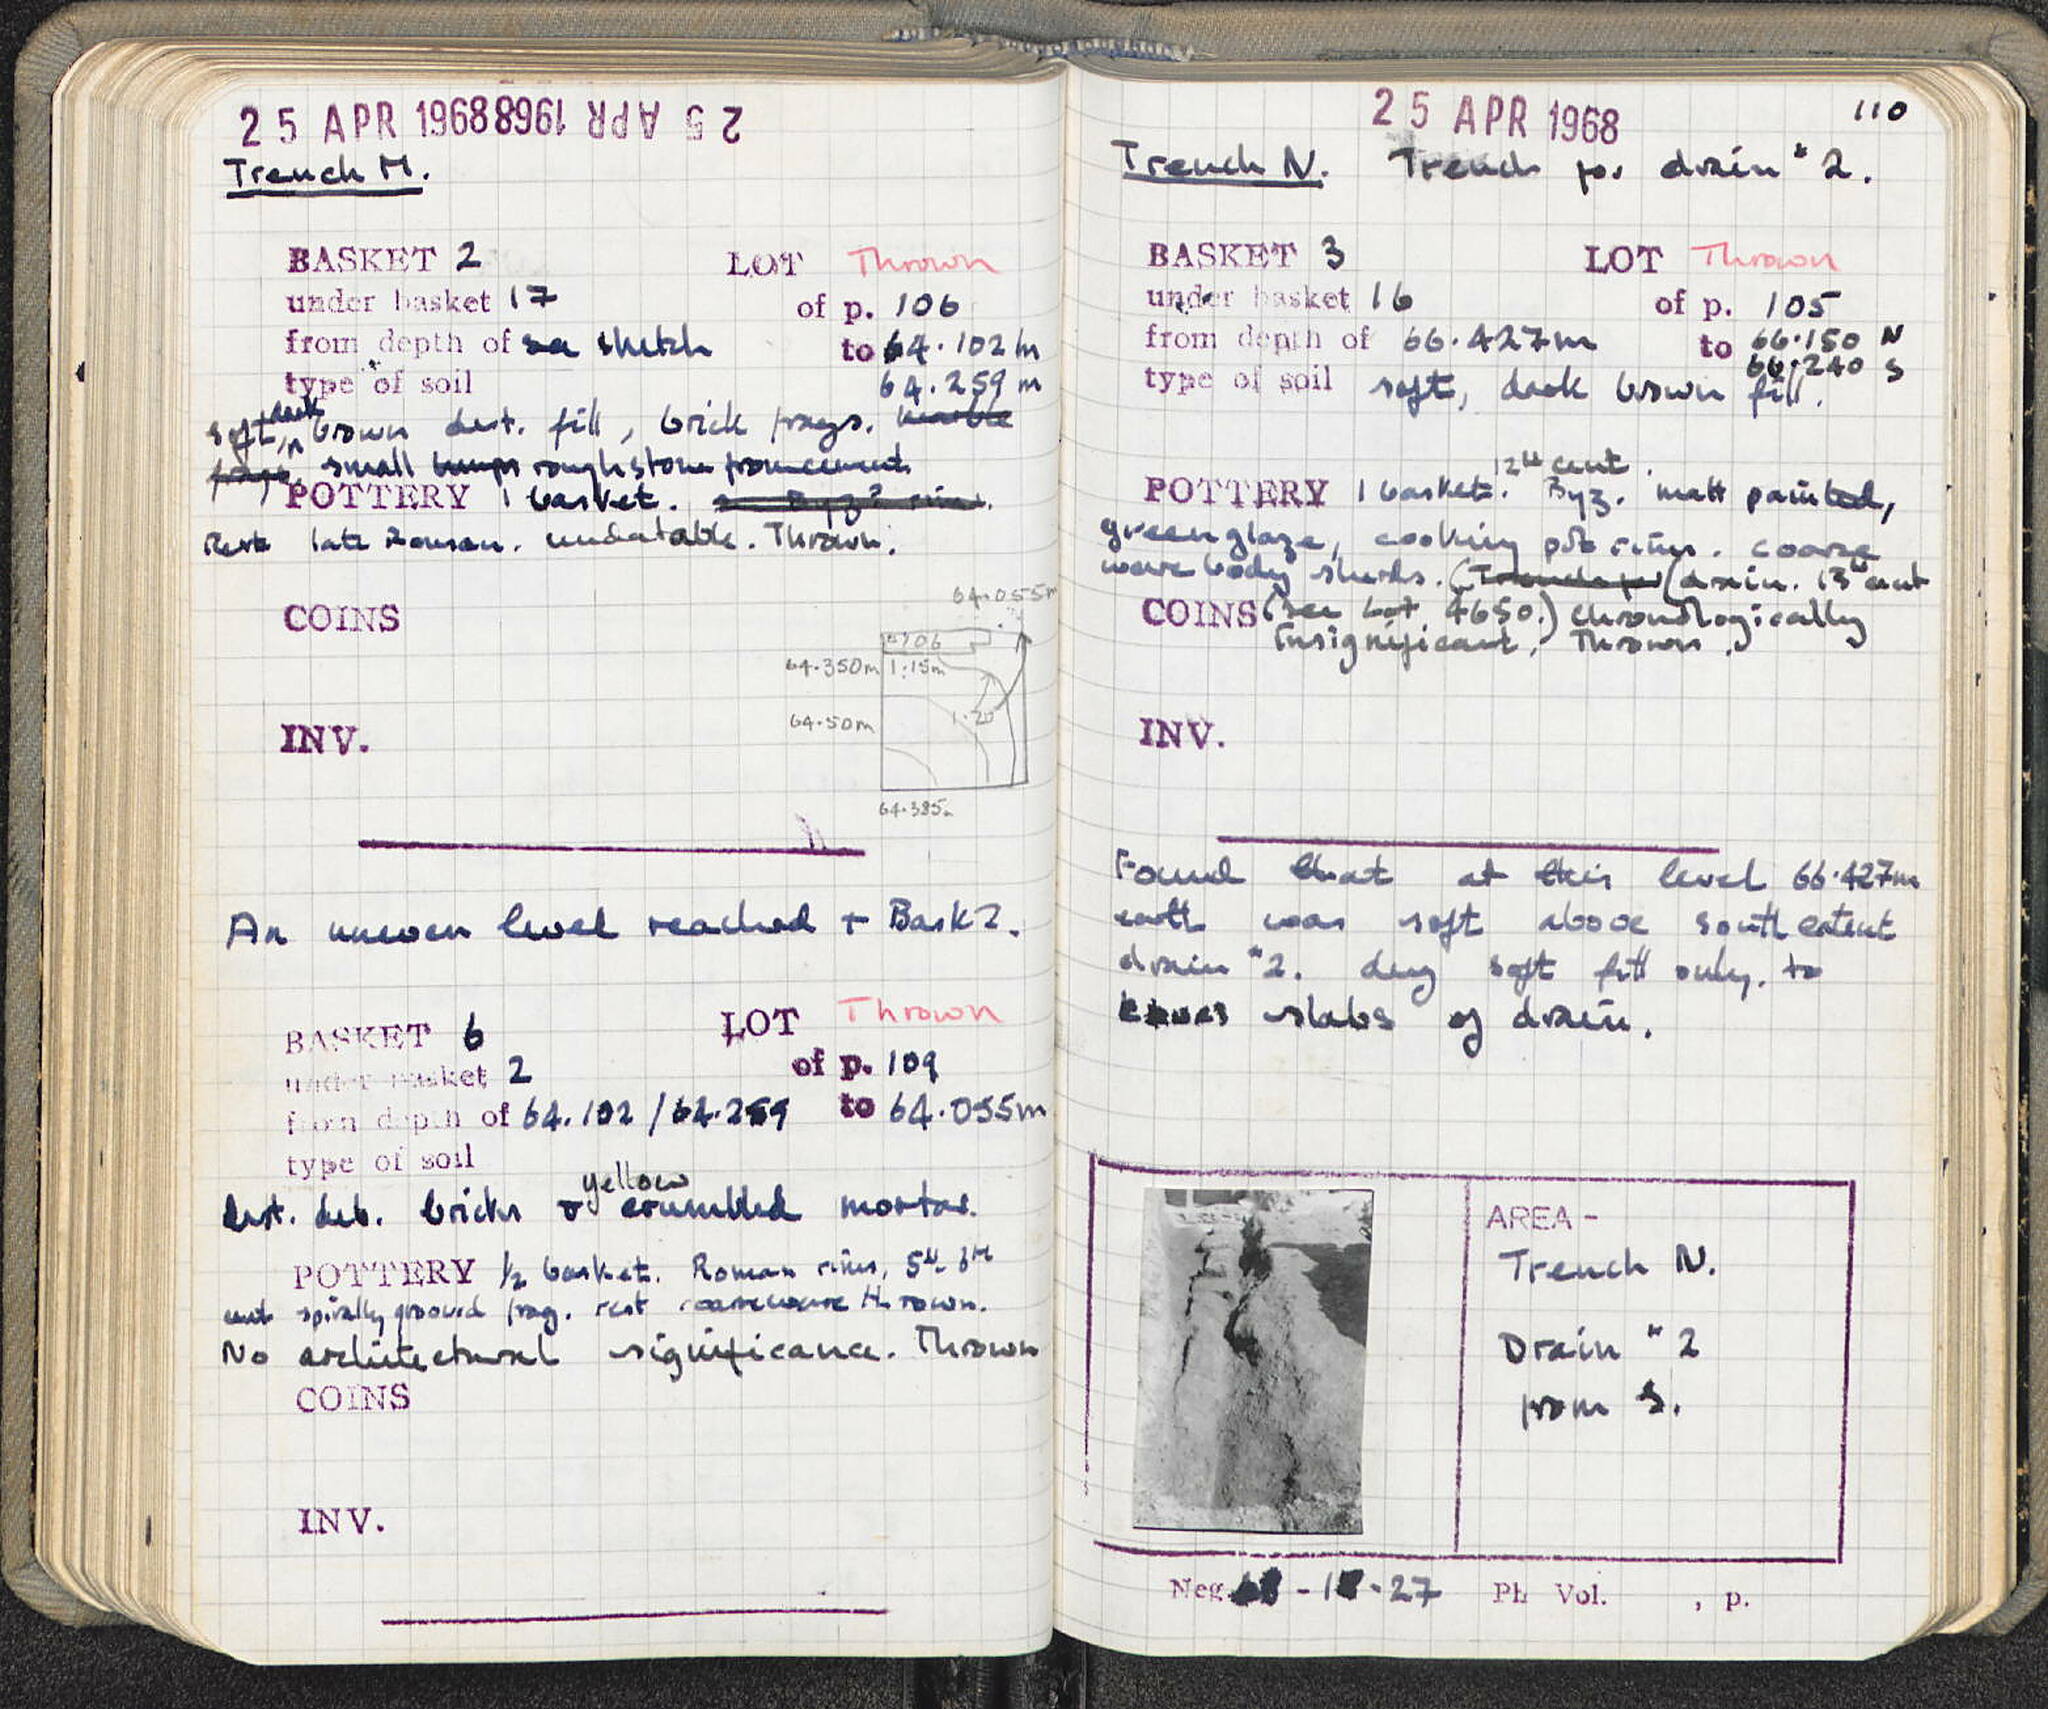 25 APR 1968 25 APR 1968
Trench M.
BASKET 2 LOT Thrown
under basket 17 of p. 106
from depth of sketch to 64.102m
type of soil 64.259m
soft, dark brown dest. fill, brick frags. marble
frags, small lumps rough stone from cement
POTTERY 1 basket. Byz? rim.
Rest late Roman. undatable. Thrown.
COINS
64.055m
64.350m 1.15m
64.50m 1.20
64.385m
INV.
An uneven level reached + Bask 2.
BASKET 6 LOT Thrown
under basket 2 of p. 109
from depth of 64.102 / 64.259 to 64.055m
type of soil
yellow
dest. deb. bricks & crumbled mortar.
POTTERY 1/2 basket. Roman rims, 5th
cent spirally grooved frag. rest coarseware thrown.
No architectural significance. Thrown
COINS
INV.
25 APR 1968 110
Trench N. Trench for drain #2.
BASKET 3 LOT Thrown
under basket 16 of p. 105
from depth of 66.427m to 66.150 N
66.240 S
type of soil soft, dark brown fill.
12th cent.
POTTERY 1 basket. Byz. matt painted,
green glaze, cooking pot rims. coarse
ware body sherds. (Trench for (drain. 13th cent
COINS (see Lot 4650.) chronologically
insignificant. Thrown.
INV.
Found that at this level 66.427m
earth was soft above south extent
drain #2. dug soft fill only. to
slabs of drain.
AREA -
Trench N.
Drain #2
from S.
Neg. - 27 Ph Vol. , p.